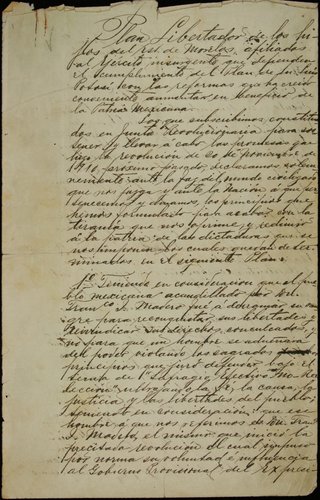 Plan Libertador de los hi-
jos del Est. de Morelos, afiliados
al Ejército insurgente que defienden
el cumplimiento del Plan de San Luis
Potosí con las reformas que ha creido
conveniente aumentar en beneficio de
la Patria Mexicana.
Los que subscribimos, constitui-
dos en Junta Revolucionaria para sos-
tener y llevar á cabo las promesas que
hizo la revolucion de 20 de Noviembre de
1910 proximo pasado, declaramos solem-
nemente ante la faz del mundo civilizado
que nos juzga y ante la Nacion á que per-
tenecemos y amamos, los principios que
hemos formulado para acabar con la
tirania que nos oprime y redimir
á la patria de las dictaduras que se
nos imponen las cuales quedan de ter-
minadas en el siguiente Plan:
1º Teniendo en consideracion que el pue-
blo mexicano acaudillado por Dn.
Franco. I. Madero fué á derramar su san-
gre para reconquistar sus libertades y
reivindicar sus derechos conculcados, y
no para que un hombre se adueñara
del poder violando los sagrados
principios que juró defender bajo el
lema de "Sufragio Efectivo" "No Ree-
leccion," ultrajando la fé, la causa, la
justicia y las libertades del pueblo;
teniendo en consideracion: que ese
hombre á que nos referimos es Dn. Fran
I. Madero, el mismo que inició la
precitada revolucion el cual impuso
por norma su voluntad é influencia
al Gobierno Provisional del Ex Presi-